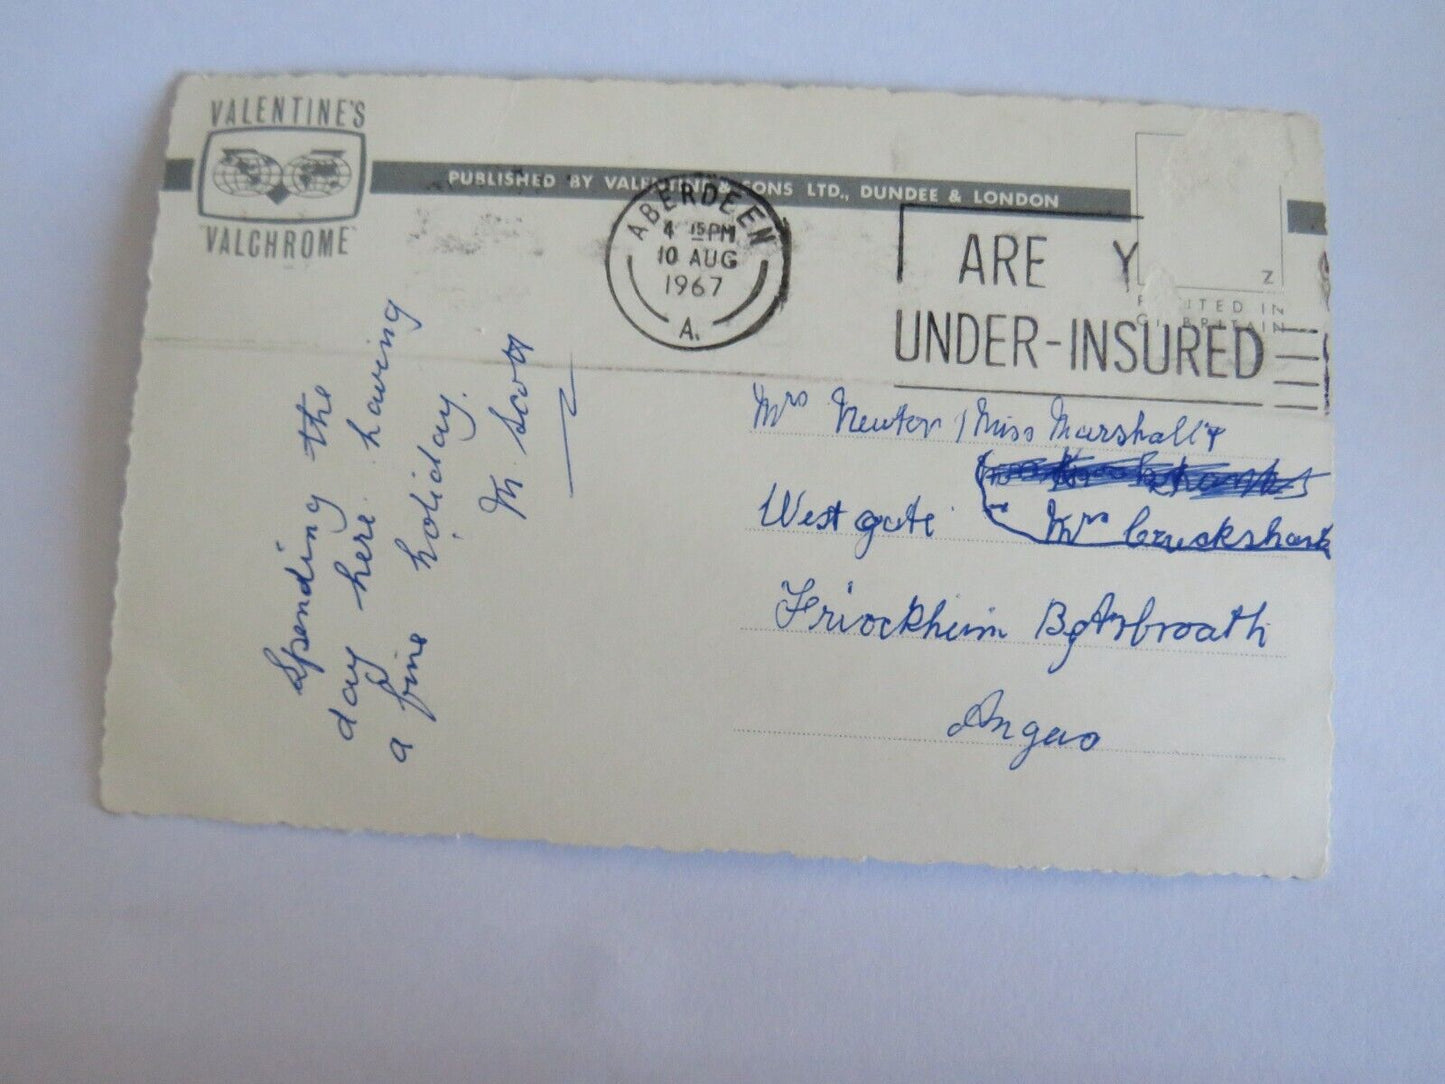 VALENTINE'S
VALCHROME
PUBLISHED BY VALENTINE & SONS LTD., DUNDEE & LONDON
ABERDEEN
4 15 PM
10 AUG
1967
A.
ARE Y
UNDER-INSURED
Z
PRINTED IN
GT. BRITAIN
Spending the
day here having
a fine holiday.
M Scott
Mrs Newton / Miss Marshall &
West gate
Mrs Cruckshank
Friockheim By Arbroath
Angus